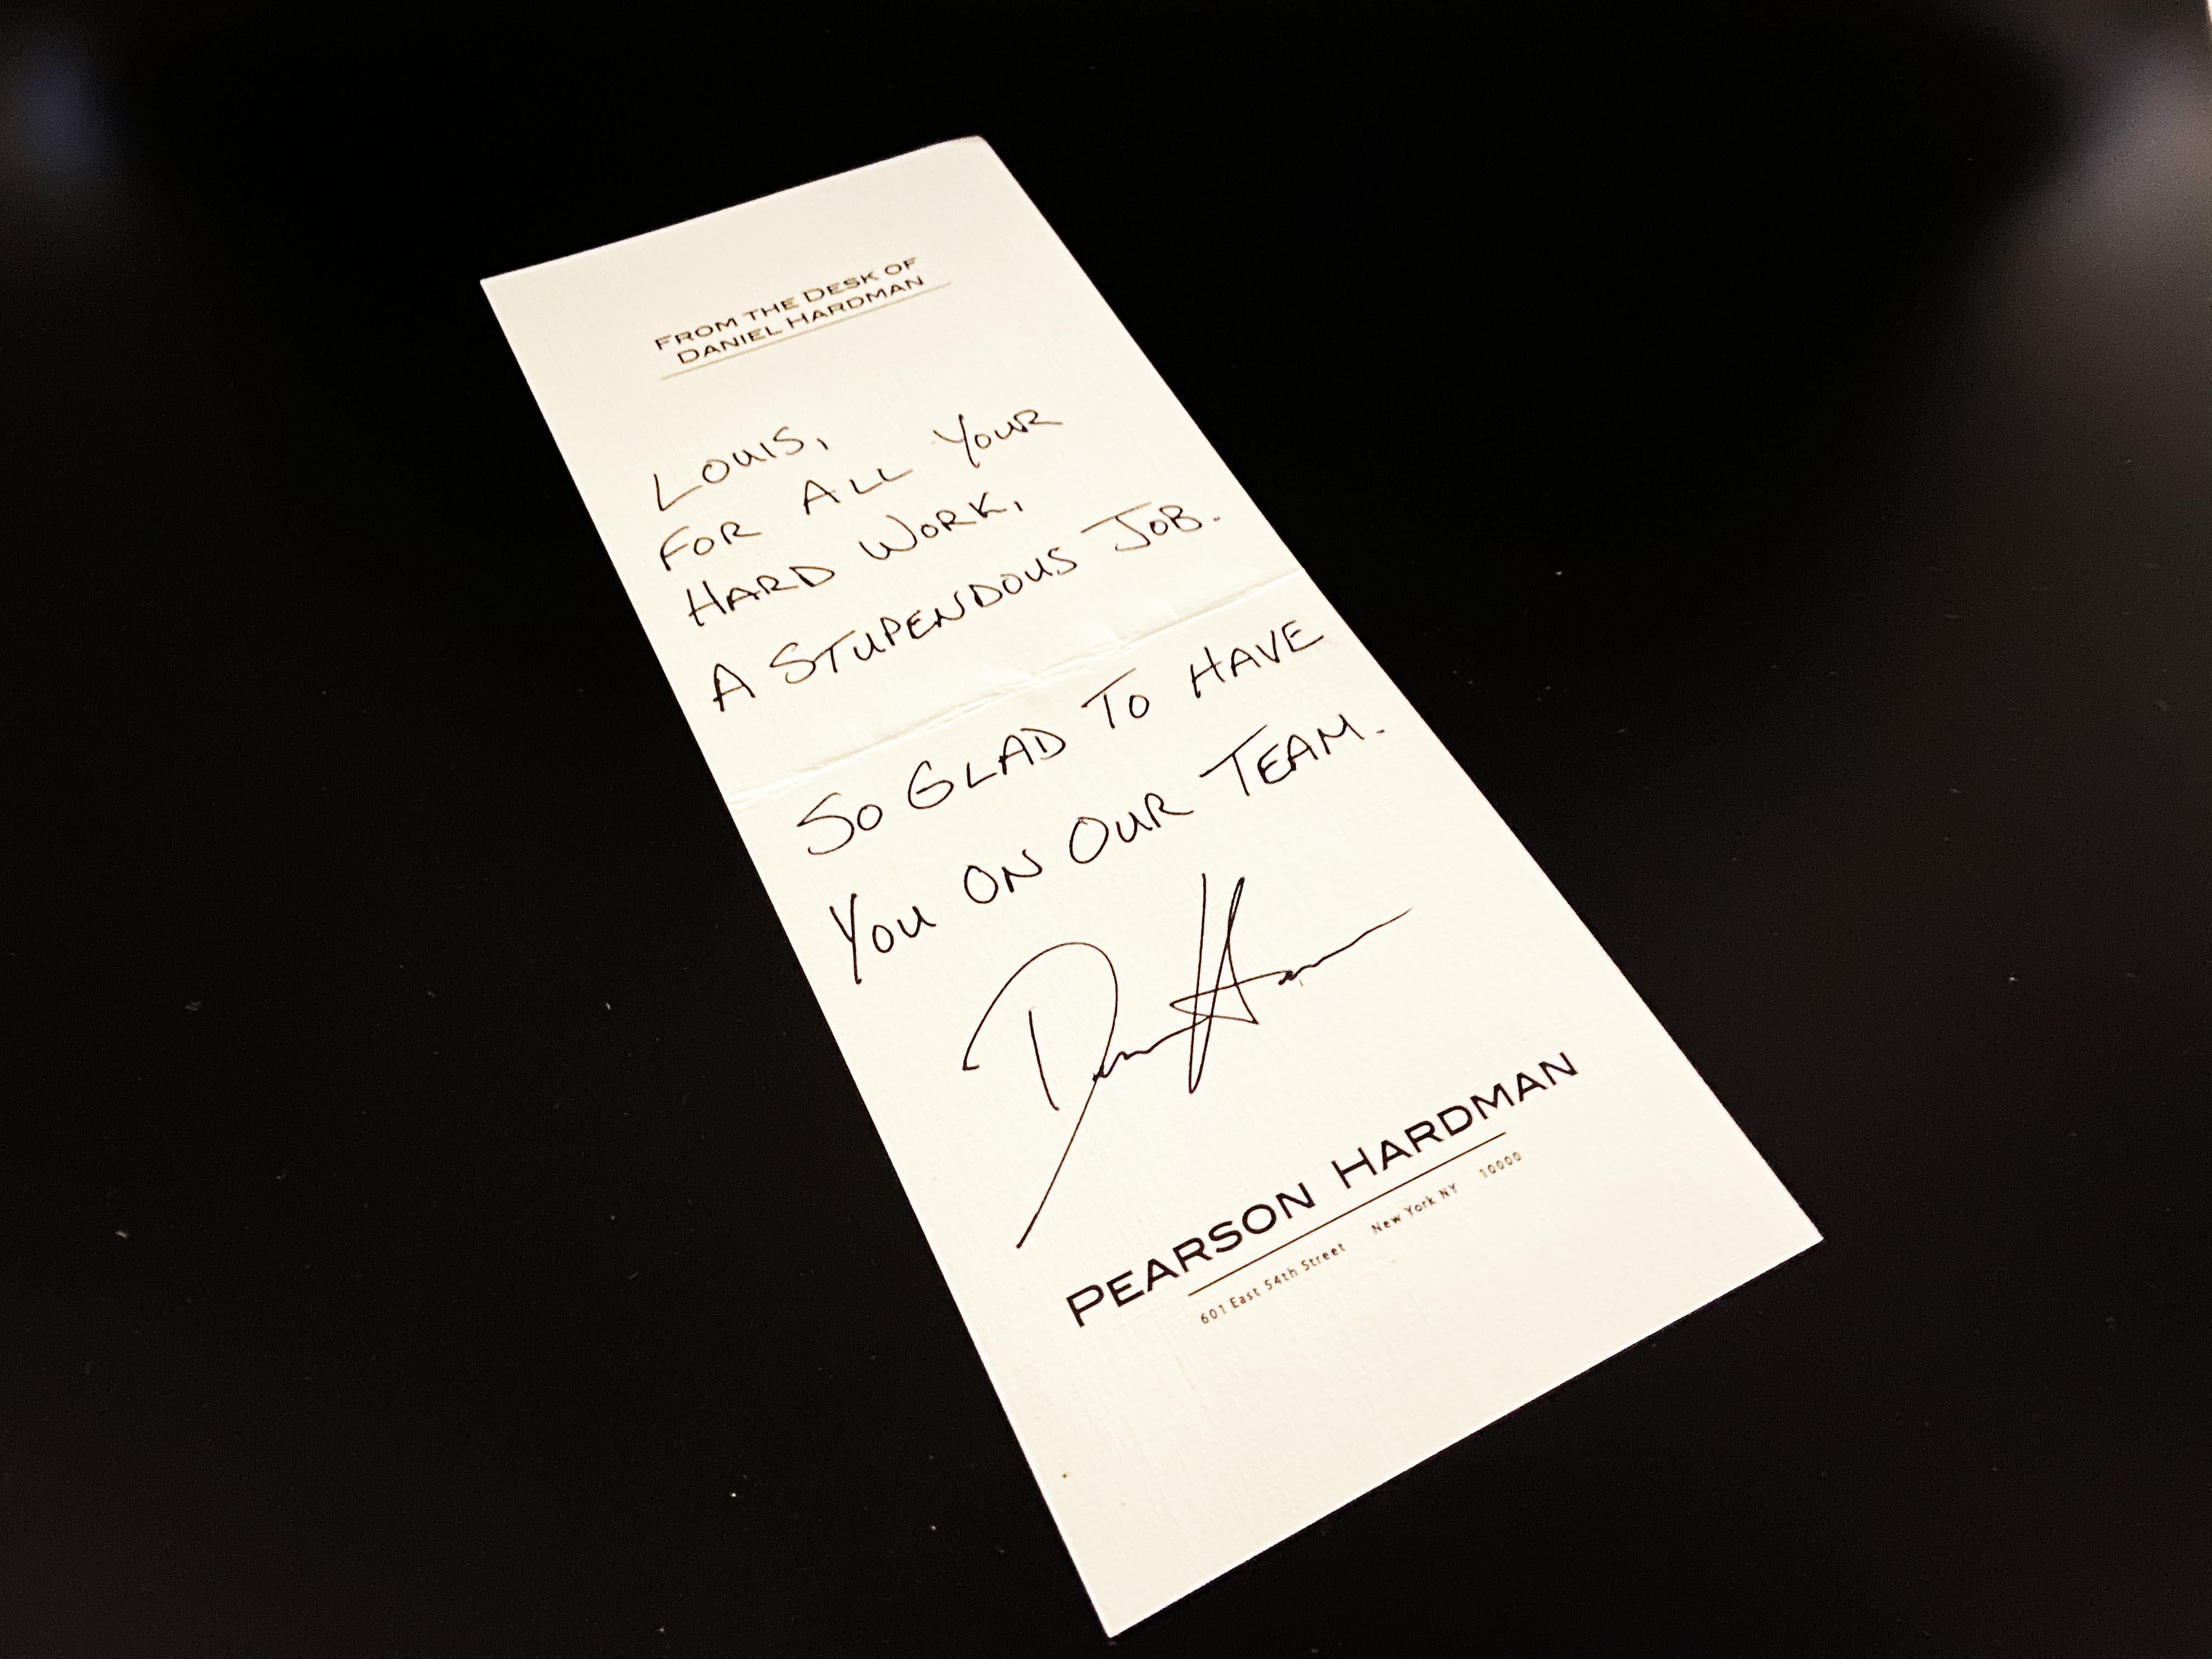 FROM THE DESK OF
DANIEL HARDMAN
LOUIS,
FOR ALL YOUR
HARD WORK,
A STUPENDOUS JOB.
SO GLAD TO HAVE
YOU ON OUR TEAM.
PEARSON HARDMAN
601 East 54th Street New York NY 10000